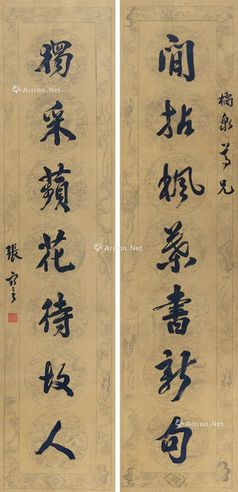 橘泉尊兄
閒拈楓葉書新句
獨采蘋花待故人
張謇
Artron.Net
Artron.Net
Artron.Net
Artron.Net